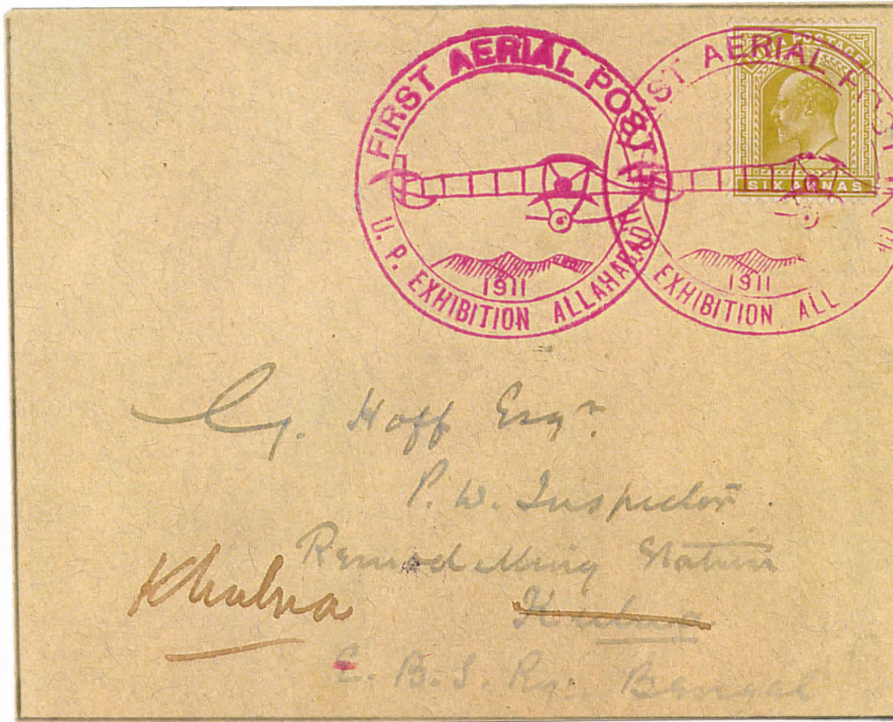 FIRST AERIAL POST
U. P. EXHIBITION ALLAHABAD
1911
ST AERIAL POST
EXHIBITION ALL
1911
POSTAGE
SIX ANNAS
G. Hoff Esqr.
P. W. Inspector.
Remodelling Station
Khulna
E. B. S. Ry. Bengal